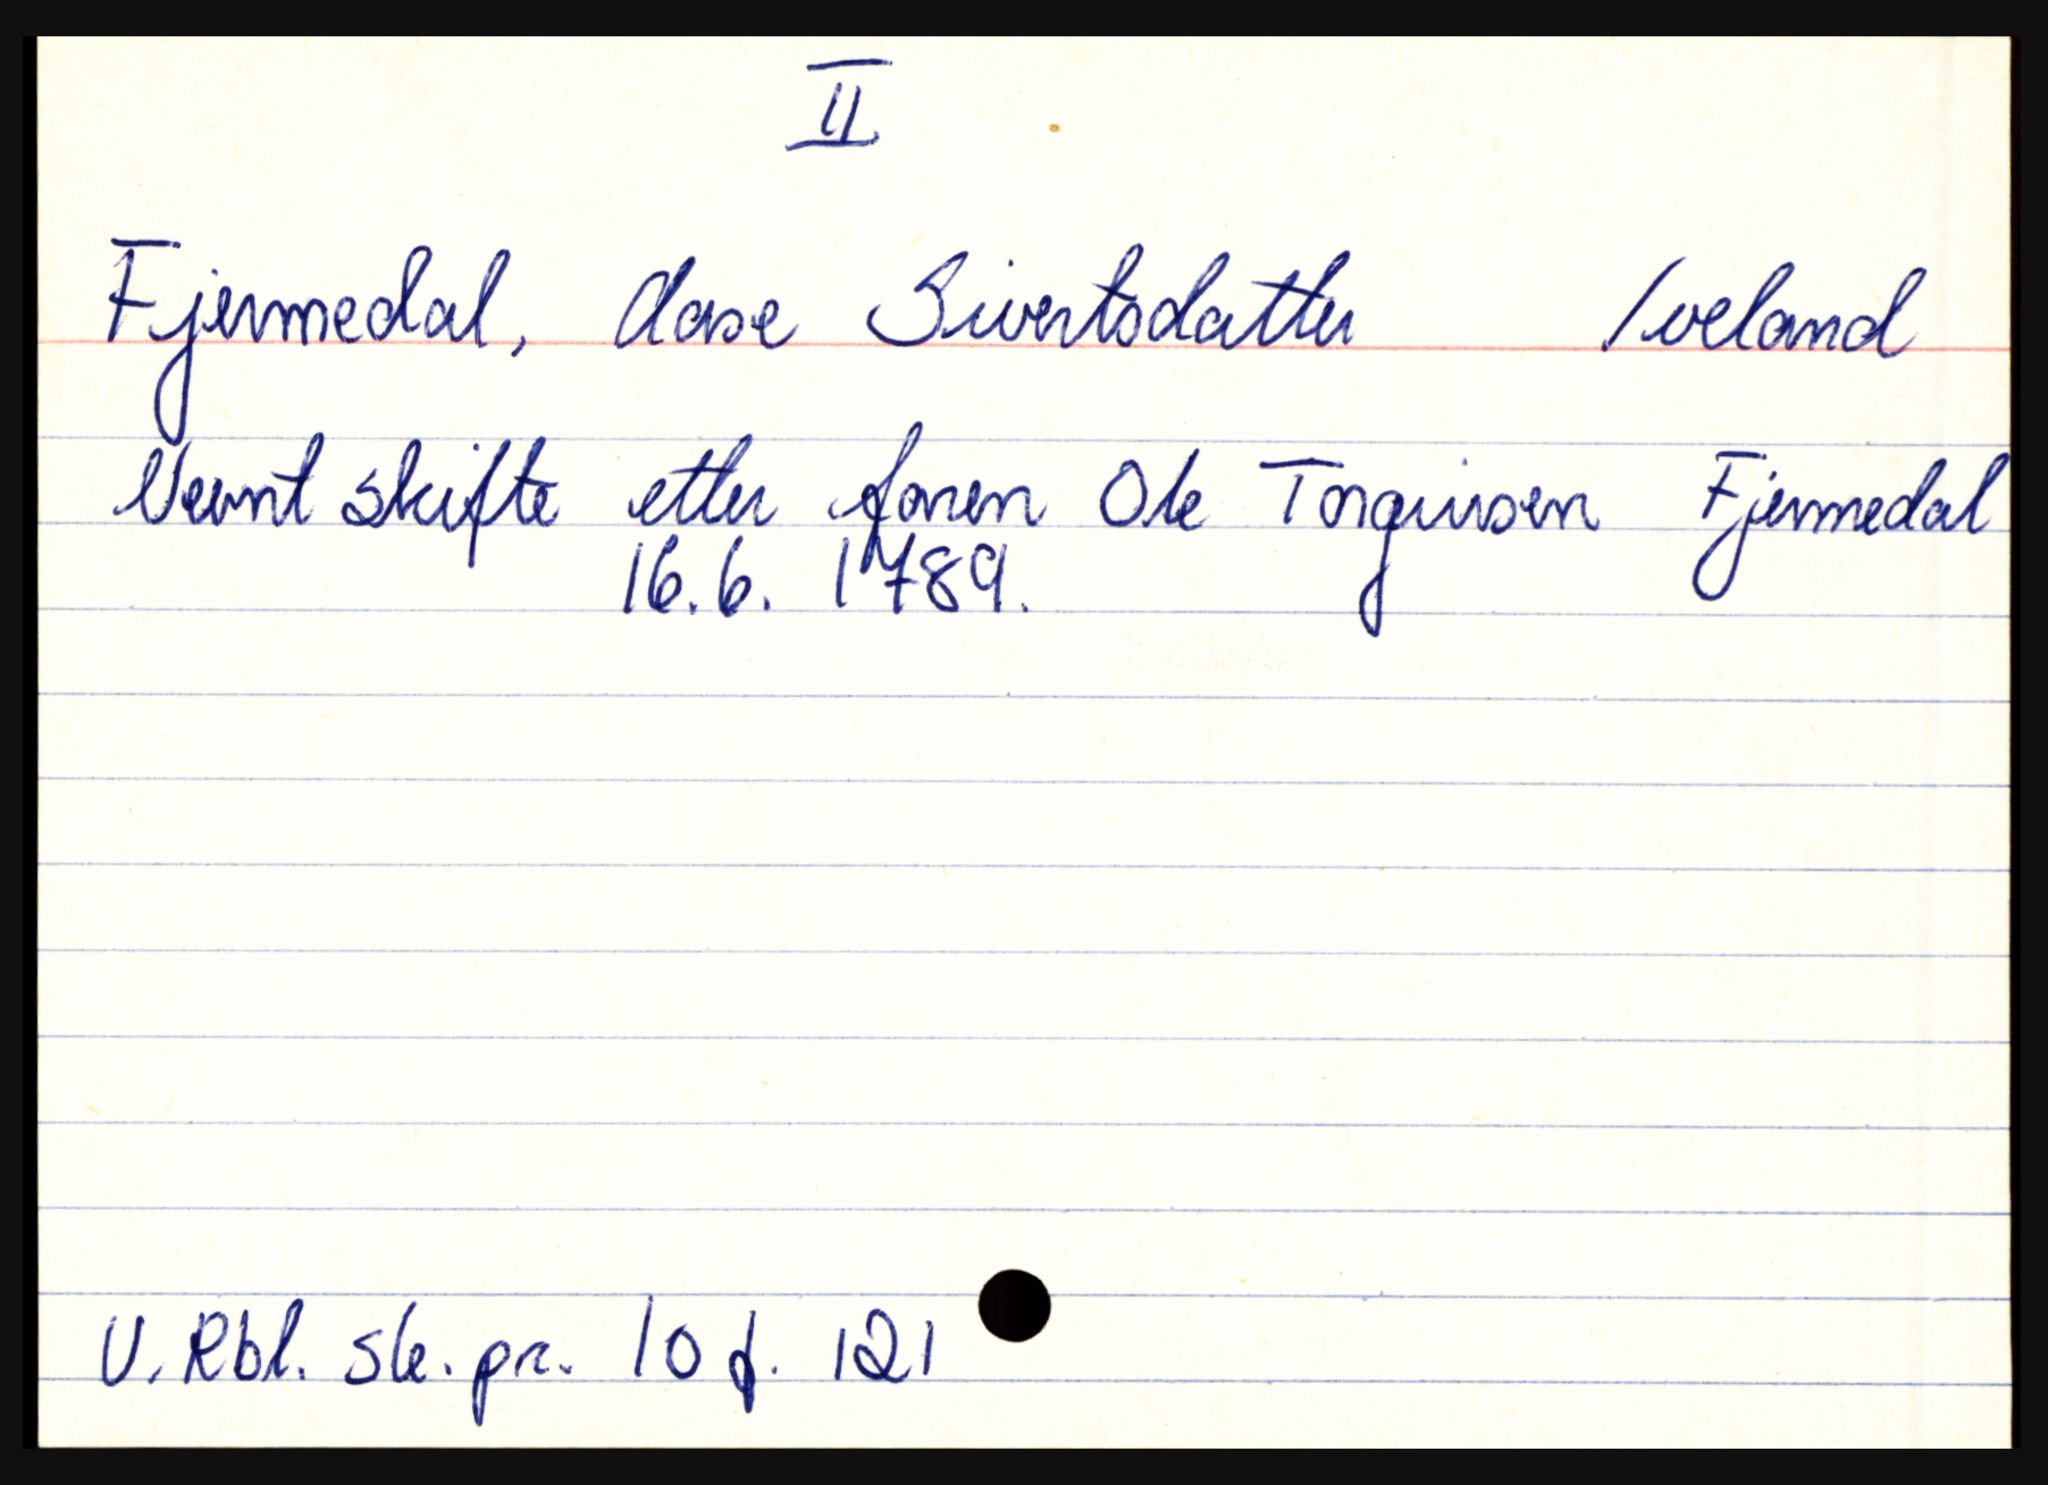 II
Fjermedal, Aase Sivertsdatter Iveland
Nevnt skifte etter faren Ole Torgiusen Fjermedal
16.6. 1789.
V. Rbl. sk. pr. 10 f. 121